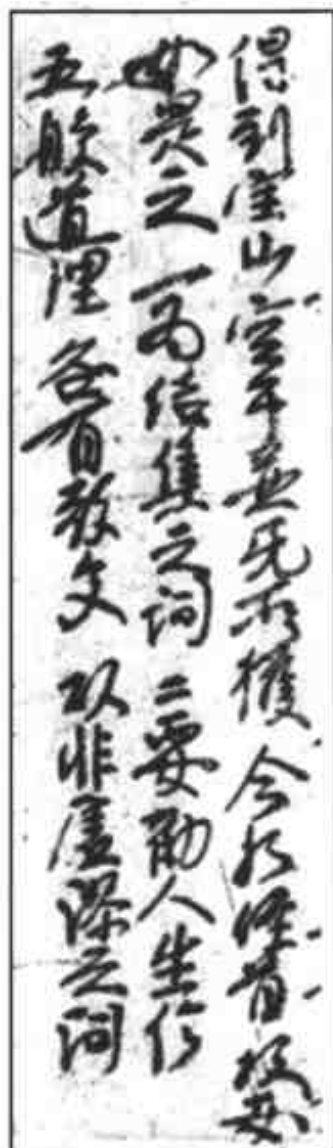 得到宝山空手並无所獲 今於經首 故安
如是之 一為結集之詞 二要勸人生信
五般道理 各有教文 以非虛謬之詞